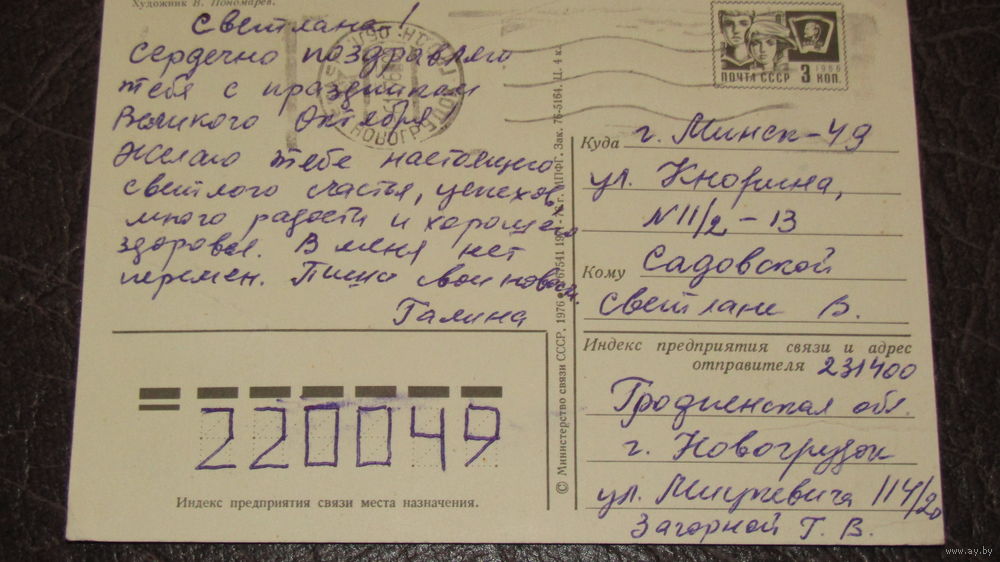 Художник В. Пономарев.
Светлана!
Сердечно поздравляю
тебя с праздником
Великого Октября!
Желаю тебе настоящего
светлого счастья, успехов,
много радости и хорошего
здоровья. В меня нет
перемен. Пиши свои новости.
Галина
220049
Индекс предприятия связи места назначения.
© Министерство связи СССР, 1976
Зак. 76-5164. Ц. 4 к.
ПОЧТА СССР 3 КОП.
1966
Куда г. Минск-49
ул. Кнорина,
N 11/2 - 13
Кому Садовской
Светлане В.
Индекс предприятия связи и адрес
отправителя 231400
Гродненская обл.
г. Новогрудок
ул. Мицкевича 114/20
Загорной Г. В.
www.ay.by